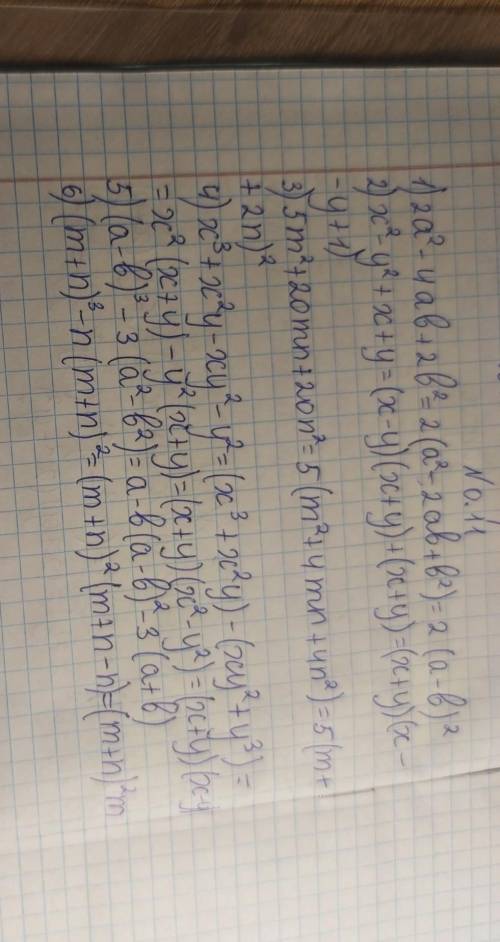 No.11
1) 2a² - 4ab + 2b² = 2(a² - 2ab + b²) = 2(a-b)²
2) x² - y² + x + y = (x-y)(x+y) + (x+y) = (x+y)(x-
-y+1)
3) 5m² + 20mn + 20n² = 5(m² + 4mn + 4n²) = 5(m+
+2n)²
4) x³ + x²y - xy² - y² = (x³ + x²y) - (xy² + y³) =
= x²(x+y) - y²(x+y) = (x+y)(x² - y²) = (x+y)(x-y)
5) (a-b)³ - 3(a² - b²) = a-b(a-b)² - 3(a+b)
6) (m+n)³ - n(m+n)² = (m+n)²(m+n-n) = (m+n)²m